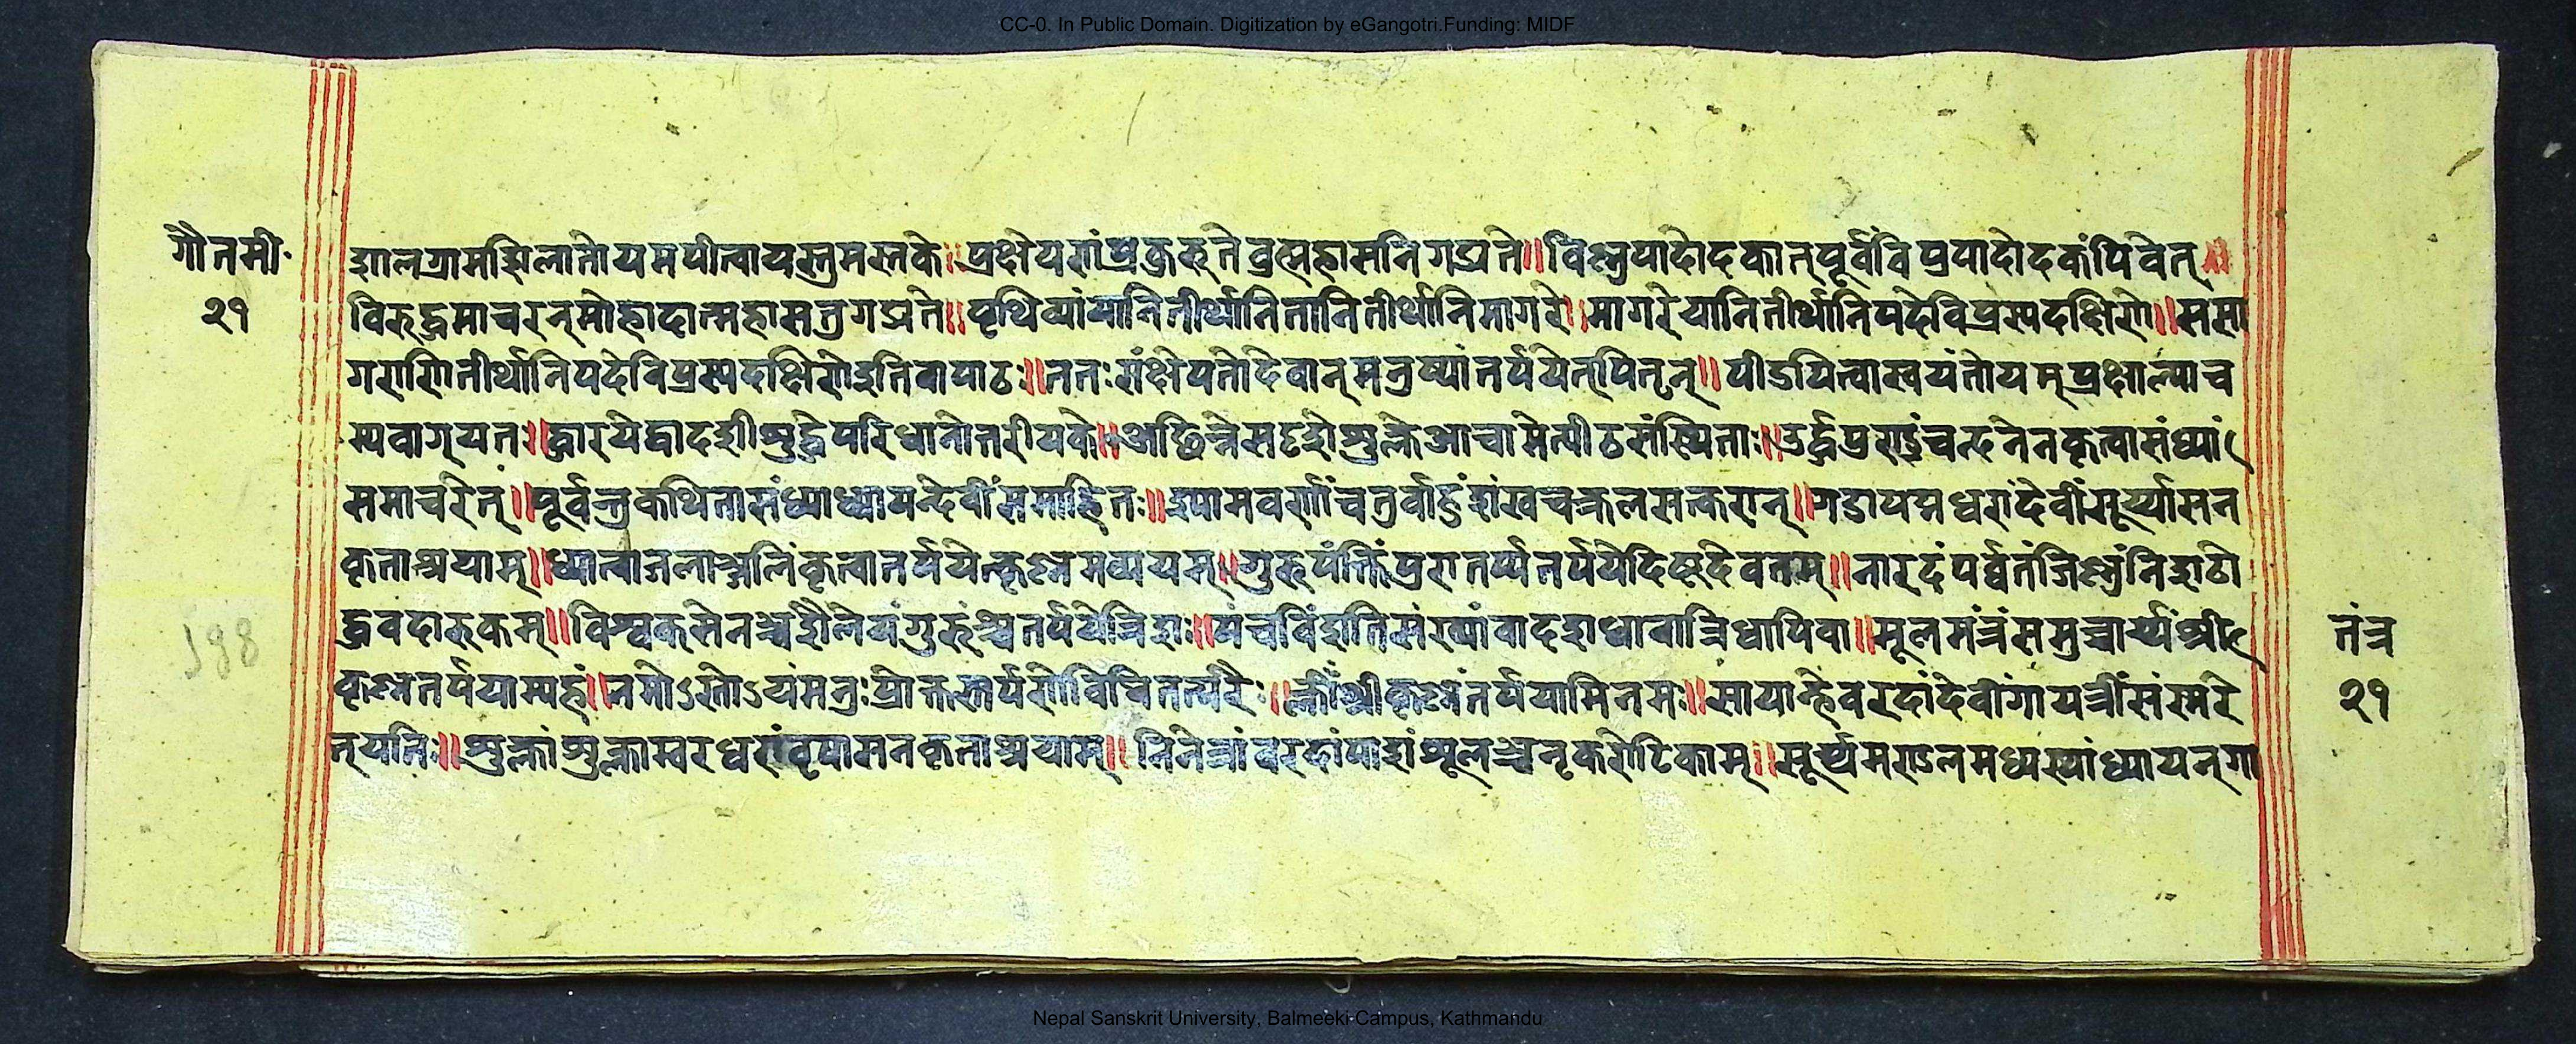 CC-0. In Public Domain. Digitization by eGangotri.Funding: MIDF
गौतमी॰
२१
शालग्रामशिलातोयमपीत्वायस्तुमस्तके॥प्रक्षेपणंप्रकुरुतेब्रह्महासनिगद्यते॥विष्णुपादोदकात्पूर्वंविप्रपादोदकंपिवेत्॥
विरुद्धमाचरन्मोहादात्महासतुगद्यते॥पृथिव्यांयानितीर्थानितानितीर्थानिसागरे॥सागरेयानितीर्थानिपदेविप्रस्यदक्षिणे॥ससा
गराणितीर्थानिपदेविप्रस्यदक्षिणेइतिवापाठः॥ततःसंक्षेपतोदेवान्मनुष्यांतर्पयेत्पितॄन्॥पीडयित्वास्वयंतोयम्प्रक्षाल्याच
म्यवाग्यतः॥द्धारयेद्वाससीशुद्धेपरिधानोत्तरीयके॥अछिन्नेसदृशेशुक्लेआचामेत्पीठसंस्थिताः॥ऊर्द्धप्रुण्ड्रंचन्दनेनकृत्वासंध्यां
समाचरेत्॥पूर्वन्तुकथितासंध्याध्यायेन्देवींसमाहितः॥श्यामवर्णांचतुर्वाहुंशंखचक्रलसत्करान्॥गदापद्मधरांदेवींसूर्य्यासन
कृताश्रयाम्॥ध्यात्वाजलाञ्जलिंकृत्वातर्पयेत्कृष्णमव्ययम्॥गुरुपंक्तिंप्रुरातर्प्यतर्पयेदिष्टदेवताम्॥नारदंपर्वतंजिष्णुंनिशठो
द्धवदारुकम्॥विश्वक्सेनञ्चशैलेयंगुरुंश्चतर्पयेत्रिशः॥पंचविंशतिसंख्यांवादशधावात्रिधापिवा॥मूलमंत्रंसमुच्चार्य्यश्री
कृष्णतर्पयाम्यहं॥नमोऽस्तोऽयंमनुःप्रोक्तस्तर्पणेविधितत्परैः॥क्लींश्रीकृष्णंतर्पयामिनमः॥सायाह्नेवरदांदेवींगायत्रींसंस्मरे
त्यतिः॥शुक्लांशुक्लाम्वरधरांवृषासनकृताश्रयाम्॥त्रिनेत्रांवरदांपाशंशूलञ्चनृकरोटिकाम्॥सूर्य्यमण्डलमध्यस्थांध्यायन्गा
१४४
तंत्र
२१
Nepal Sanskrit University, Balmeeki Campus, Kathmandu